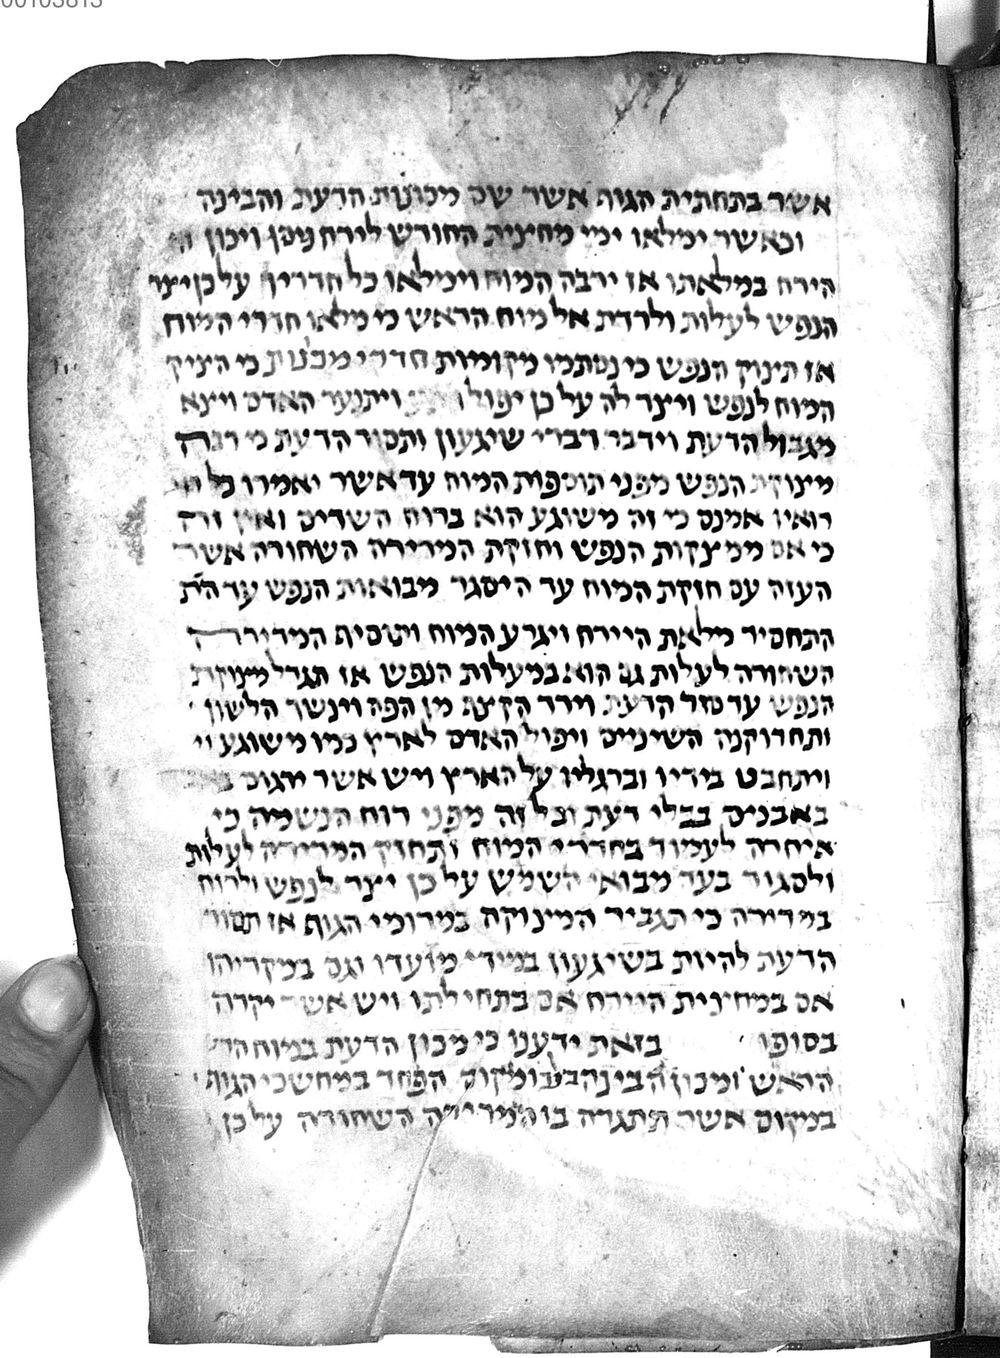 אשר בתחתית הגוף אשר שם מכונות הדעת והבינה
וכאשר ימלאו ימי מחצית החודש לירח נוסן ויכון
הירח במלאתו אז ירבה המוח וימלאו כל חדריו על כן ייצר
הנפש לעלות ולרדת אל מוח הראש כי מלאו חדרי המוח
אז תינוק הנפש כי נסתמו מקומות חדרי מכונות כי היציק
המוח לנפש וייצר לה על כן יפול ויתנער האדם וייצא
מגבול הדעת וידבר דברי שיגעון ותסור הדעת מי רבה
מינוקת הנפש מפני תוספות המוח עד אשר יאמרו כל
רואיו אמנם כי זה משוגע הוא ברוח השדים ואין זה
כי אם ממצקות הנפש וחזקת המרירה השחורה אשר
העזה עם חזקת המוח עד היסגר מבואות הנפש עד הת
התחסיר מלאת היירח ויגרע המוח ותוסיף המרירה
השחורה לעלות גם הוא במעלות הנפש אז תגדל מצוקת
הנפש עד סור הדעת וירד הקיצף מן הפה וינשך הלשון
ותחדוקנה השיניים ויפול האדם לארץ כמו משוגע
ויתחבט בידיו וברגליו על הארץ ויש אשר ירגום
באבנים בבלי דעת וכל זה מפני רוח הנשמה כי
איחרה לעמוד בחדרי המוח ותחזק המרירה לעלות
ולסגור בעד מבואי השמש על כן ייצר לנפש ולרוח
במרירה כי תגביר המינוקה במרומי הגוף אז תסור
הדעת להיות בשיגעון במידי מועדו וגם במקריהו
אם במחצית היירח אם בתחילתו ויש אשר יקרה
בסופו בזאת ידענו כי מכון הדעת במוח
הראש ומכון הבינה במקום הפחד במחשכי הגוף
במקום אשר תתגרה בו המרירה השחורה על כן